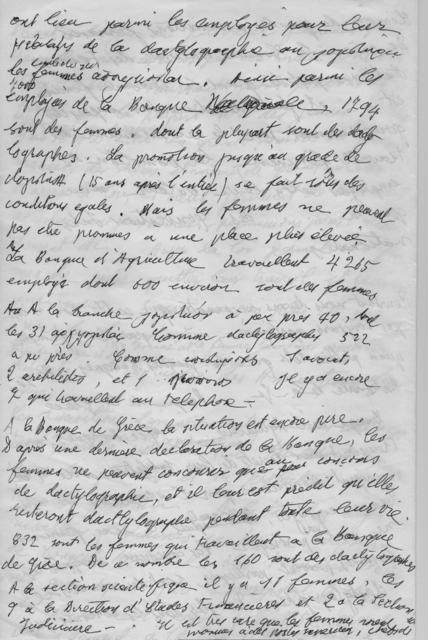 ont lieu parmi les employés pour leur
de la dactylographie au
les femmes Ainsi parmi les
4000
employées de la Banque Nationale, 1794
sont des femmes. dont la plupart sont des dacty
lographes. La promotion jusqu'au grade de
logistist (15 ans après l'entrée) se fait sous des
conditions egales. Mais les femmes ne peuvent
pas être promues a une place plus élevée
La Banque d'Agriculture travaillent 4265
employés dont 600 environ sont des femmes
A la branche a peu près 40,
les 31 Comme dactylographes 522
a peu près Comme 1 avocat,
2 architectes, et 1 Il y a encore
9 qui travaillent au telephone -
A la Banque de Grèce la situation est encore pire.
D'après une derniere declaration de la Banque, les
femmes ne peuvent concourir que au concours
de dactylographe, et il leur est prédit qu'elle
resteront dactylographe pendant toute leur vie.
832 sont les femmes qui travaillent a la Banque
de grèce. De ce nombre les 160 sont des dactylographes
A la section scientifique il y a 11 femmes, les
9 à la Direction d'Etudes Financières et 2 a la Section
Judiciaire - Il est tres rare que les femmes soient